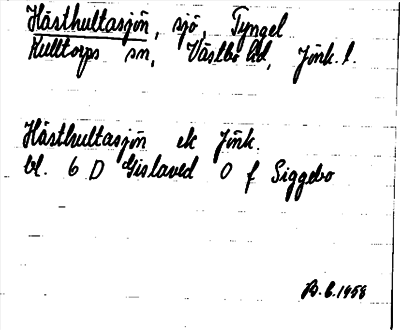 Hästhultasjön, sjö, Tyngel
Kulltorps sn, Västbo hd, Jönk. l.
Hästhultasjön ek Jönk.
bl. 6 D Gislaved O f Siggebo
B. E. 1958